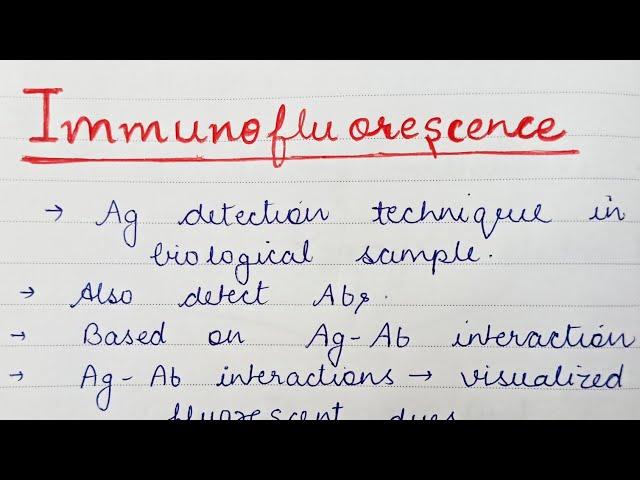 Immunofluorescence
→ Ag detection technique in
biological sample.
→ Also detect Abs.
→ Based on Ag-Ab interaction
→ Ag-Ab interactions → visualized
fluorescent dyes